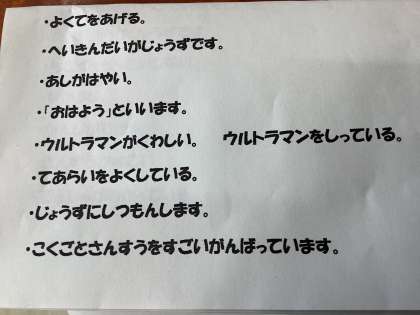 ・よくてをあげる。
・へいきんだいがじょうずです。
・あしがはやい。
・「おはよう」といいます。
・ウルトラマンがくわしい。　ウルトラマンをしっている。
・てあらいをよくしている。
・じょうずにしつもんします。
・こくごとさんすうをすごいがんばっています。